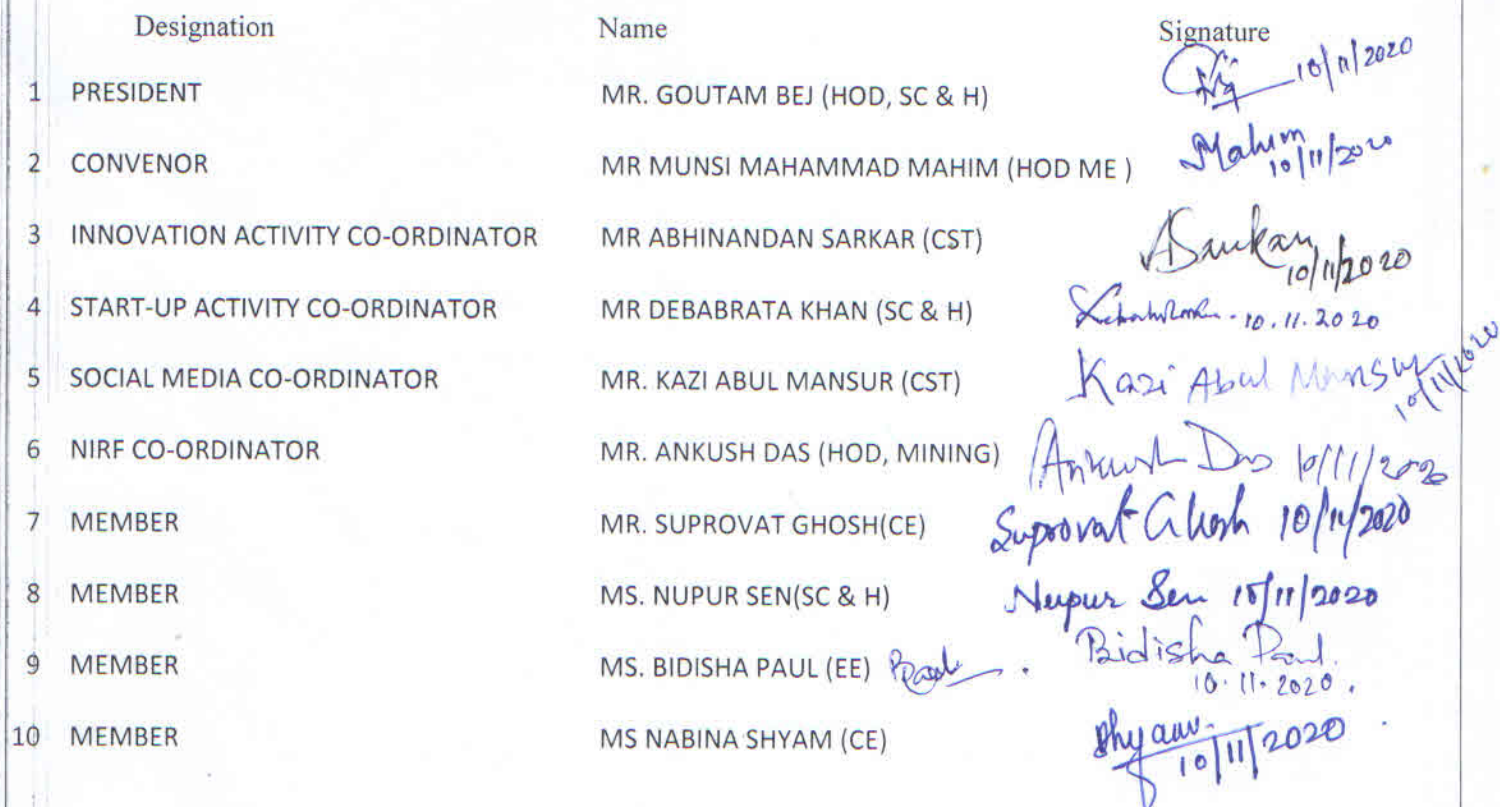 Designation Name Signature
1 PRESIDENT MR. GOUTAM BEJ (HOD, SC & H) 10/11/2020
2 CONVENOR MR MUNSI MAHAMMAD MAHIM (HOD ME ) Mahim 10/11/2020
3 INNOVATION ACTIVITY CO-ORDINATOR MR ABHINANDAN SARKAR (CST) ASarkar 10/11/2020
4 START-UP ACTIVITY CO-ORDINATOR MR DEBABRATA KHAN (SC & H) 10.11.2020
5 SOCIAL MEDIA CO-ORDINATOR MR. KAZI ABUL MANSUR (CST) Kazi Abul Mansur 10/11/2020
6 NIRF CO-ORDINATOR MR. ANKUSH DAS (HOD, MINING) Ankush Das 10/11/2020
7 MEMBER MR. SUPROVAT GHOSH(CE) Suprovat Ghosh 10/11/2020
8 MEMBER MS. NUPUR SEN(SC & H) Nupur Sen 10/11/2020
9 MEMBER MS. BIDISHA PAUL (EE) Bidisha Paul. 10.11.2020.
10 MEMBER MS NABINA SHYAM (CE) Shyam. 10/11/2020